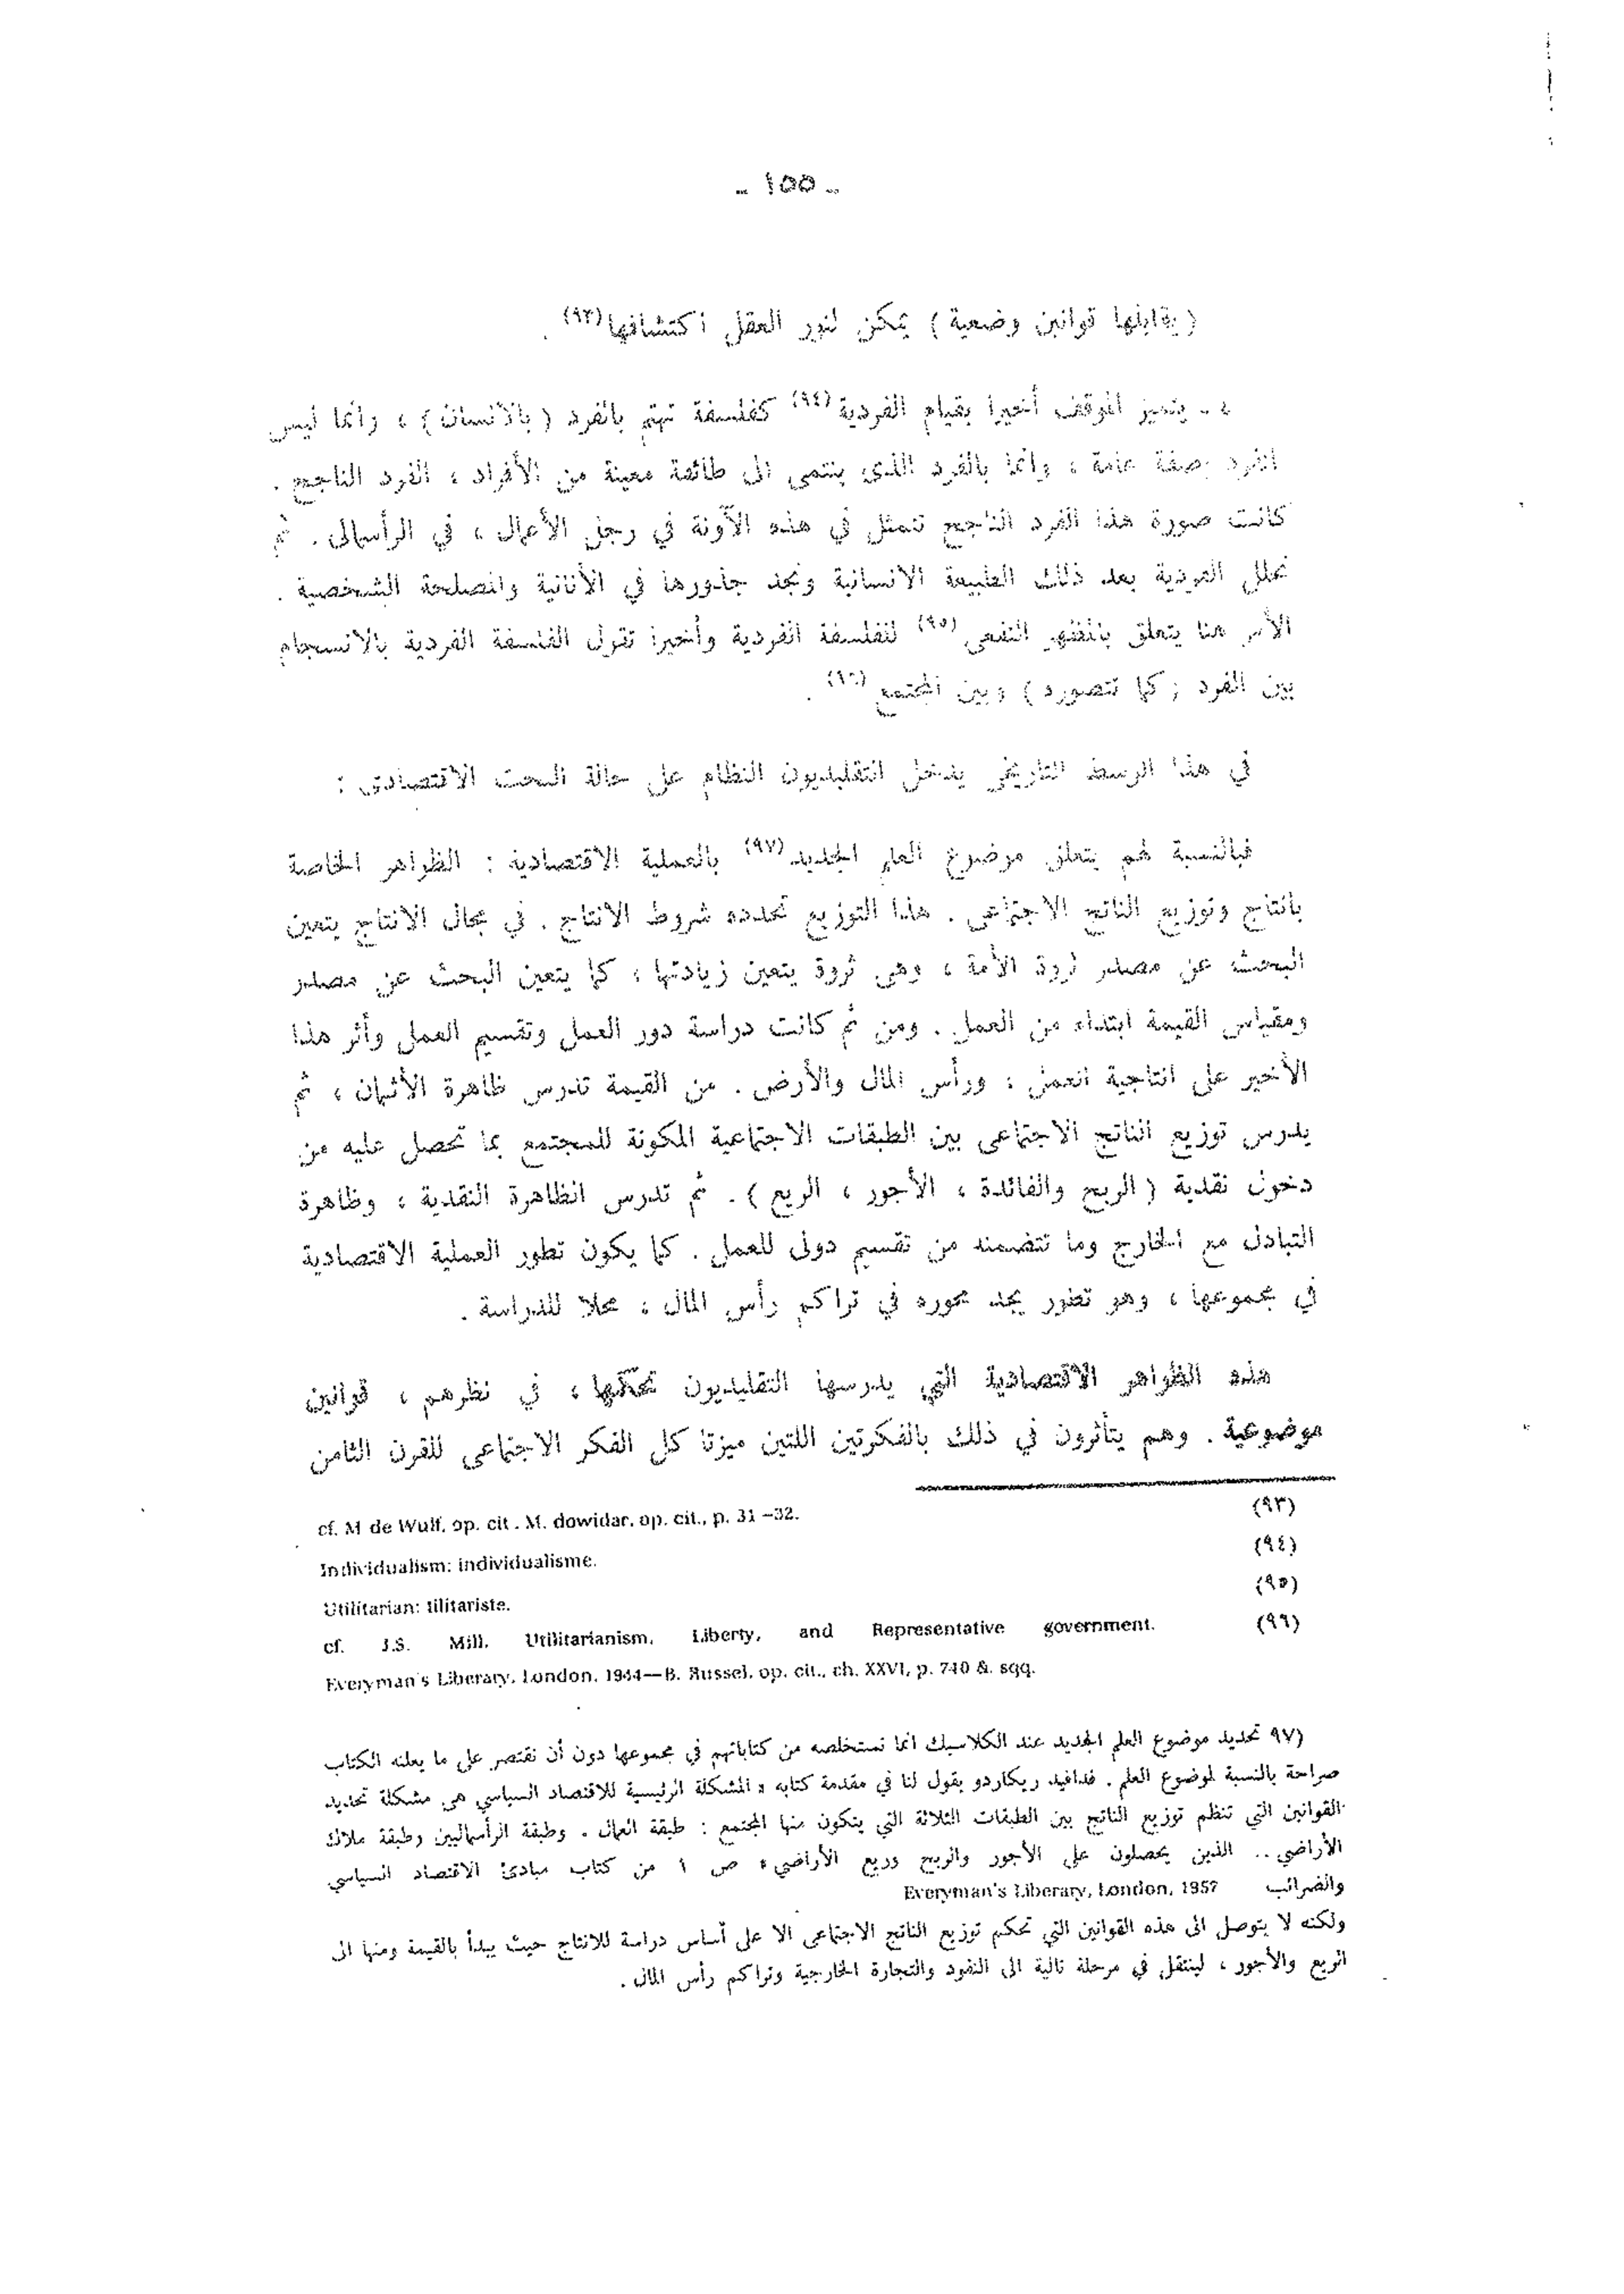 - ١٥٥ -
( يقابلها قوانين وضعية ) يمكن لنور العقل اكتشافها (٩٣) .
٤ - يتميز الموقف أخيرا بقيام الفردية (٩٤) كفلسفة تهتم بالفرد ( بالانسان ) ، وانما ليس
الفرد بصفة عامة ، وانما بالفرد الذى ينتمى الى طائفة معينة من الأفراد ، الفرد الناجح .
كانت صورة هذا الفرد الناجح تتمثل في هذه الآونة في رجل الأعمال ، في الرأسمالى . ثم
تحلل الفردية بعد ذلك الطبيعة الانسانية وتجد جذورها في الأنانية والمصلحة الشخصية .
الأمر هنا يتعلق بالمظهر النفعى (٩٥) للفلسفة الفردية وأخيرا تقول الفلسفة الفردية بالانسجام
بين الفرد ( كما تتصوره ) وبين المجتمع (٩٦) .
في هذا الوسط التاريخي يدخل التقليديون النظام على حالة البحث الاقتصادى :
فبالنسبة لهم يتعلق موضوع العلم الجديد (٩٧) بالعملية الاقتصادية : الظواهر الخاصة
بانتاج وتوزيع الناتج الاجتماعى . هذا التوزيع تحدده شروط الانتاج . في مجال الانتاج يتعين
البحث عن مصدر ثروة الأمة ، وهى ثروة يتعين زيادتها ، كما يتعين البحث عن مصدر
ومقياس القيمة ابتداء من العمل . ومن ثم كانت دراسة دور العمل وتقسيم العمل وأثر هذا
الأخير على انتاجية العمل ، ورأس المال والأرض . من القيمة تدرس ظاهرة الأثمان ، ثم
يدرس توزيع الناتج الاجتماعى بين الطبقات الاجتماعية المكونة للمجتمع بما تحصل عليه من
دخول نقدية ( الربح والفائدة ، الأجور ، الريع ) . ثم تدرس الظاهرة النقدية ، وظاهرة
التبادل مع الخارج وما تتضمنه من تقسيم دولى للعمل . كما يكون تطور العملية الاقتصادية
في مجموعها ، وهو تطور يجد محوره في تراكم رأس المال ، محلا للدراسة .
هذه الظواهر الاقتصادية التي يدرسها التقليديون تحكمها ، في نظرهم ، قوانين
موضوعية . وهم يتأثرون في ذلك بالفكرتين اللتين ميزتا كل الفكر الاجتماعى للقرن الثامن
(٩٣) cf. M de Wulf, op. cit. M. dowidar, op. cit., p. 31 -32.
(٩٤) Individualism: individualisme.
(٩٥) Utilitarian: tilitariste.
(٩٦) cf. J.S. Mill, Utilitarianism, Liberty, and Representative government.
Everyman's Liberary, London, 1944— B. Russel, op. cit., ch. XXVI, p. 740 & sqq.
(٩٧ تحديد موضوع العلم الجديد عند الكلاسيك انما نستخلصه من كتاباتهم في مجموعها دون أن نقتصر على ما يعلنه الكتاب
صراحة بالنسبة لموضوع العلم . فدافيد ريكاردو يقول لنا في مقدمة كتابه « المشكلة الرئيسية للاقتصاد السياسي هى مشكلة تحديد
القوانين التي تنظم توزيع الناتج بين الطبقات الثلاثة التي يتكون منها المجتمع : طبقة العمال . وطبقة الرأسماليين وطبقة ملاك
الأراضي .. الذين يحصلون على الأجور والربح وريع الأراضي » ص ١ من كتاب مبادئ الاقتصاد السياسي
والضرائب Everyman's Liberary, London, 1957
ولكنه لا يتوصل الى هذه القوانين التي تحكم توزيع الناتج الاجتماعى الا على أساس دراسة للانتاج حيث يبدأ بالقيمة ومنها الى
الريع والأجور ، لينتقل في مرحلة تالية الى النقود والتجارة الخارجية وتراكم رأس المال .